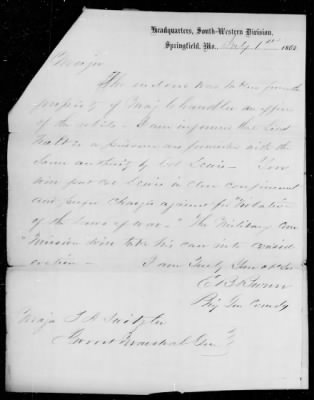 Headquarters, South-Western Division,
Springfield, Mo., July 1st 1862
Major
The enclosed was taken from the
property of Maj Chandler an officer
of the rebels - I am informed that Lieut
a prisoner was provided with the
same authority by Col Lewis - You
will put Col Lewis in close confinement
and prefer charges against for "Violation
of the laws of war -" The Military Com
"mission will take his case into consid
eration - I am Truly Your Obt Svt
E. B. Brown
Brig Gen Comdg
Major
Provost Marshal Gen